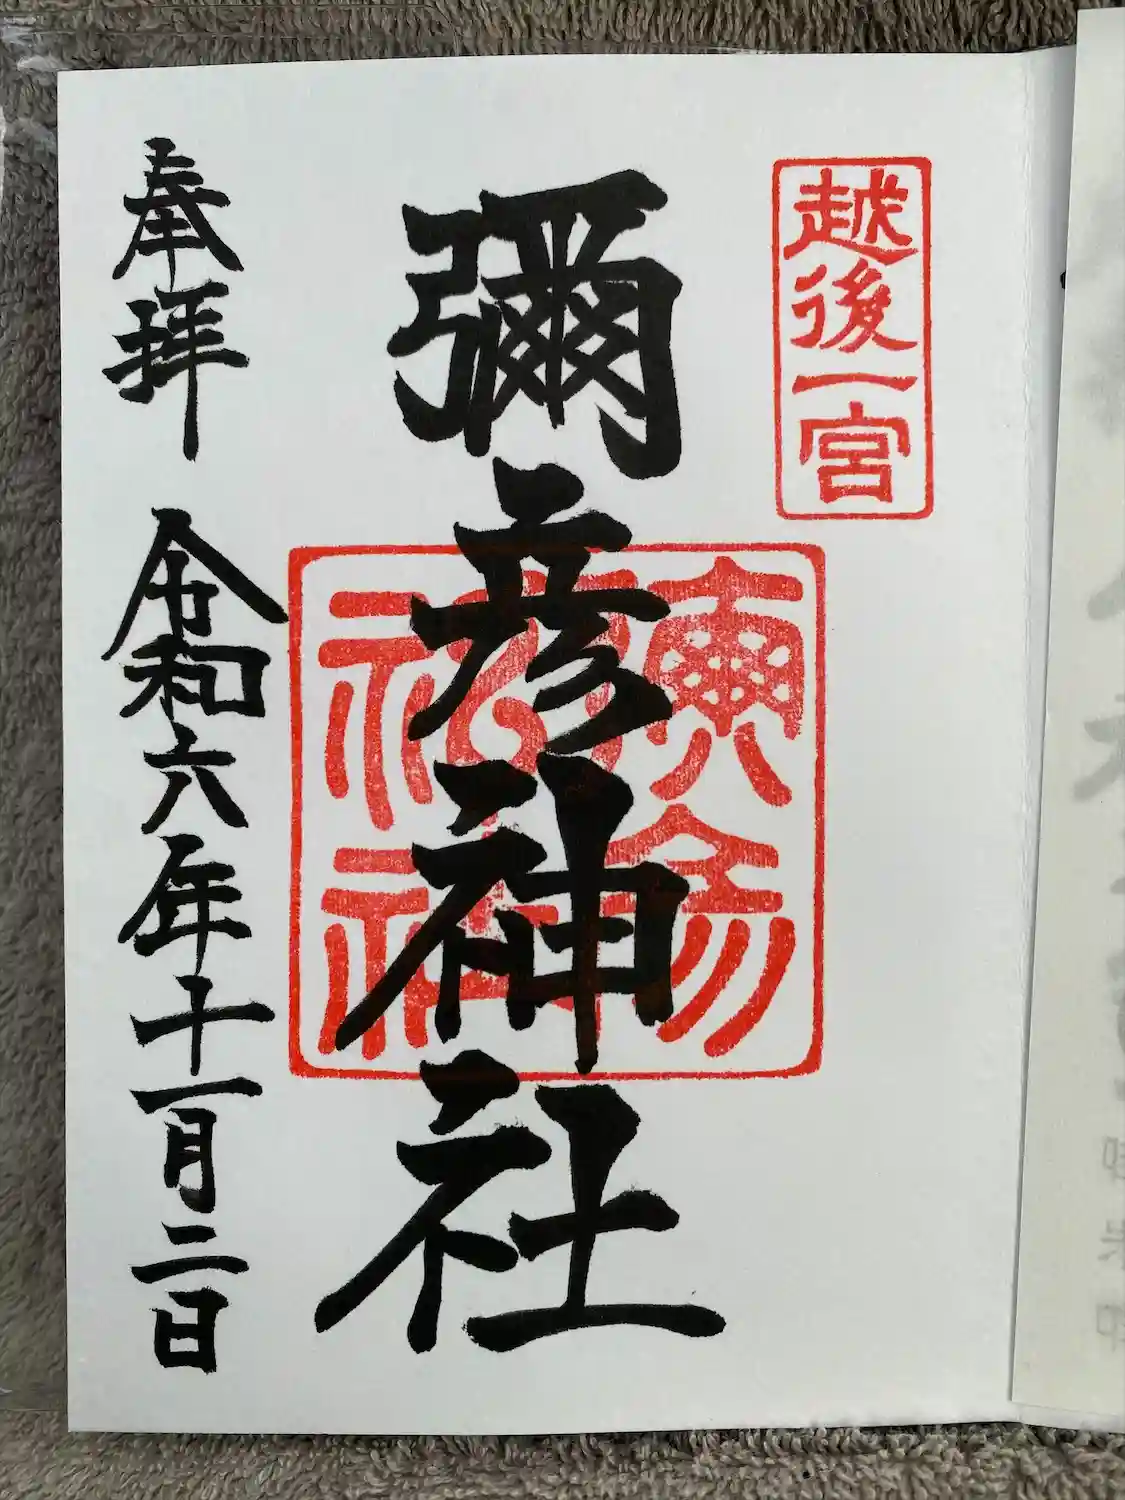 越後一宮
彌彦神社
奉拝
令和六年十一月二日